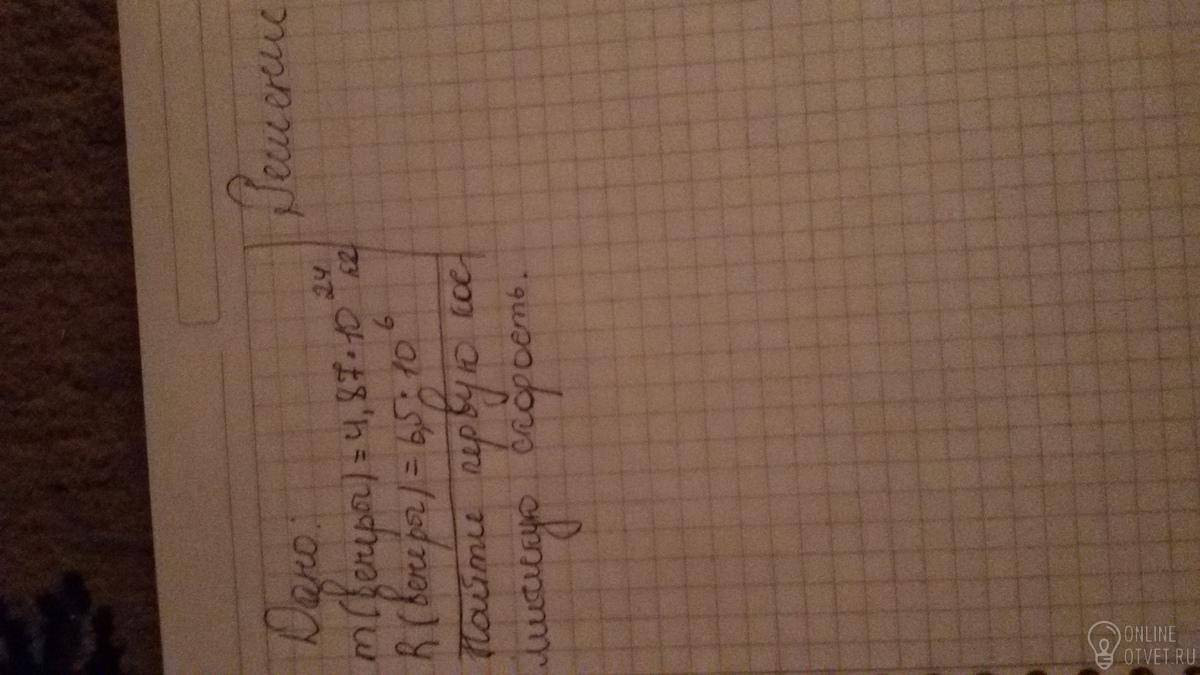 Дано:
m (венеры) = 4,87 · 10²⁴ кг
R (венеры) = 6,5 · 10⁶
Найти первую кос-
мичную скорость.
Решени
ONLINE
OTVET.RU